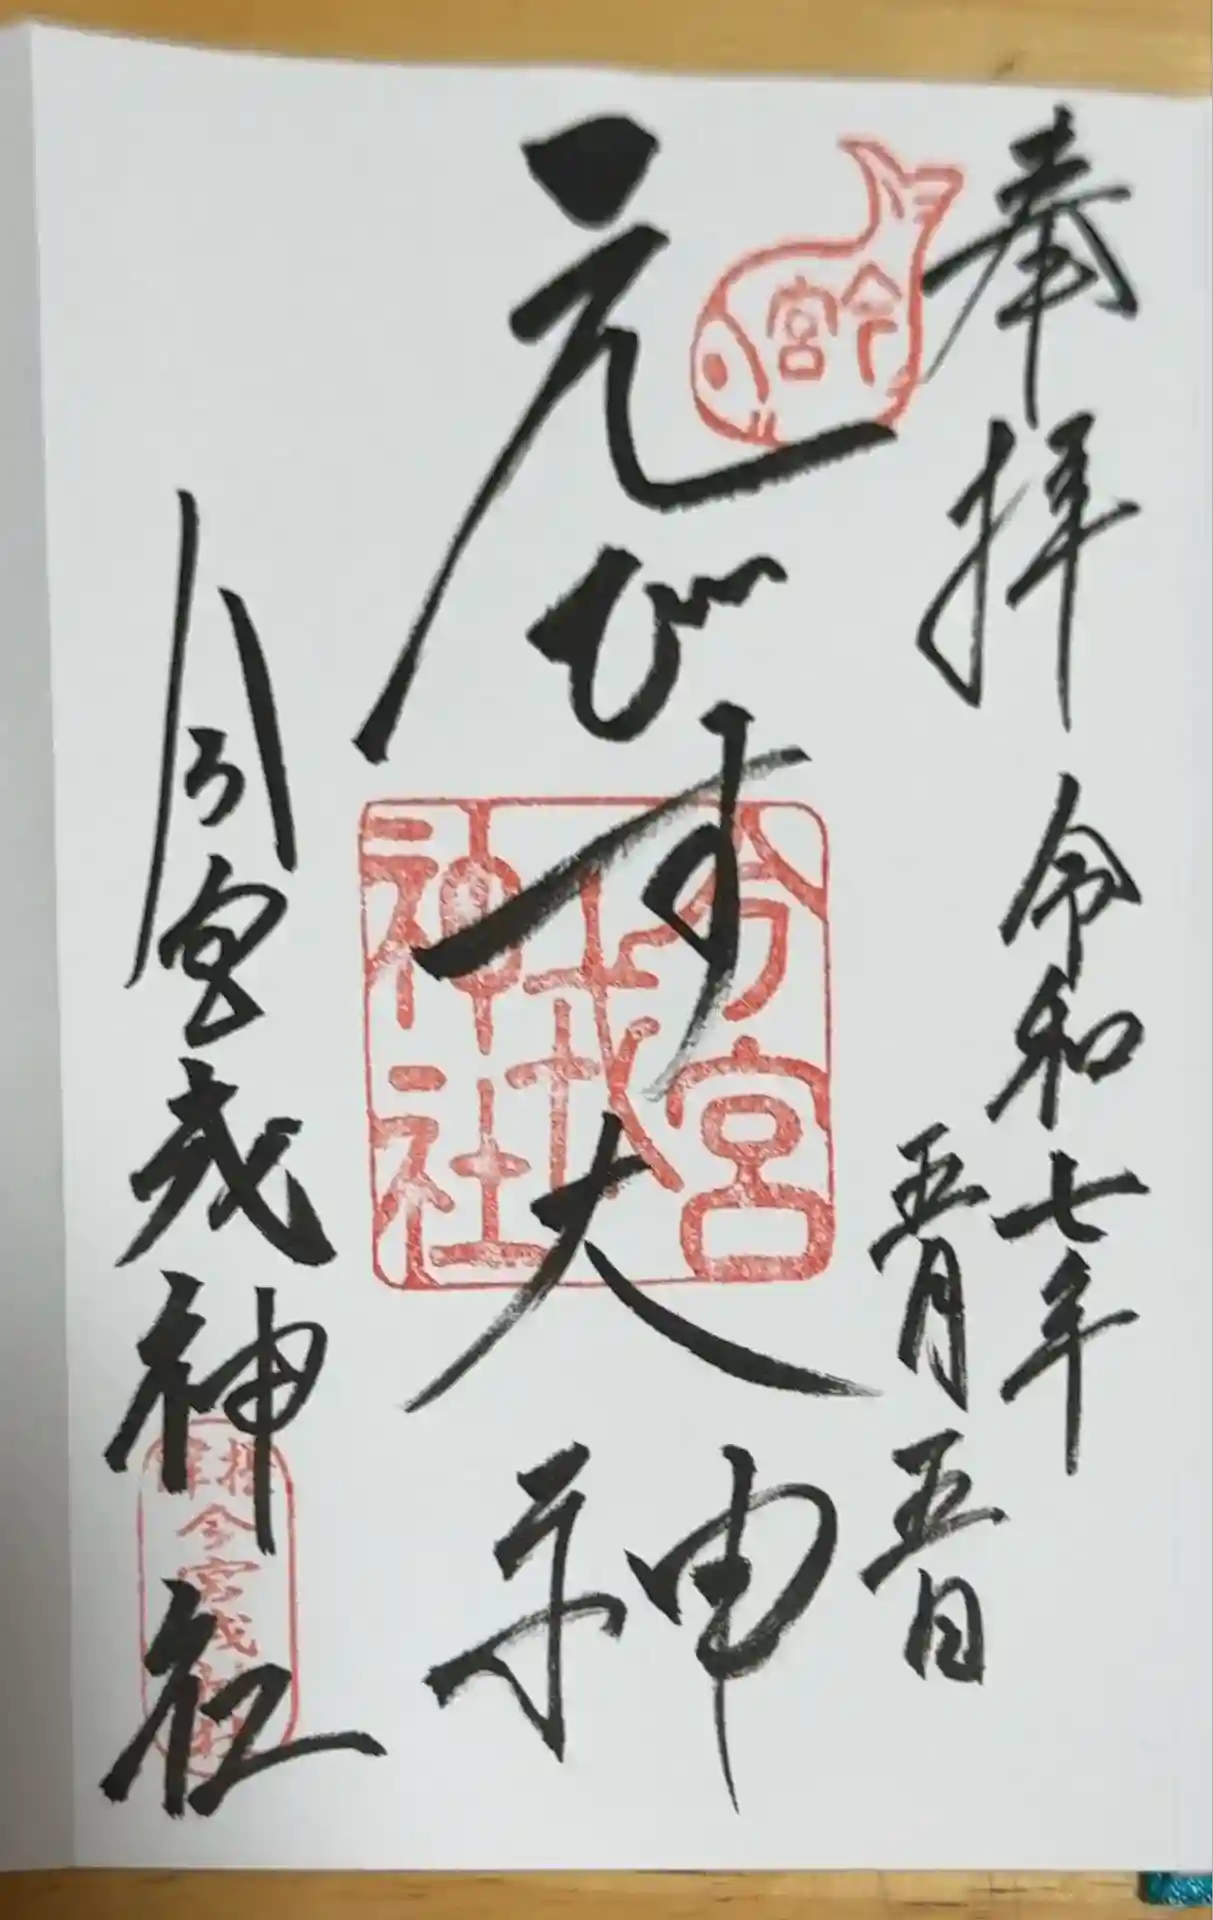 奉拝
令和七年
五月五日
今宮
えびす大神
今宮
戎
神社
今宮戎神社
今宮戎神社